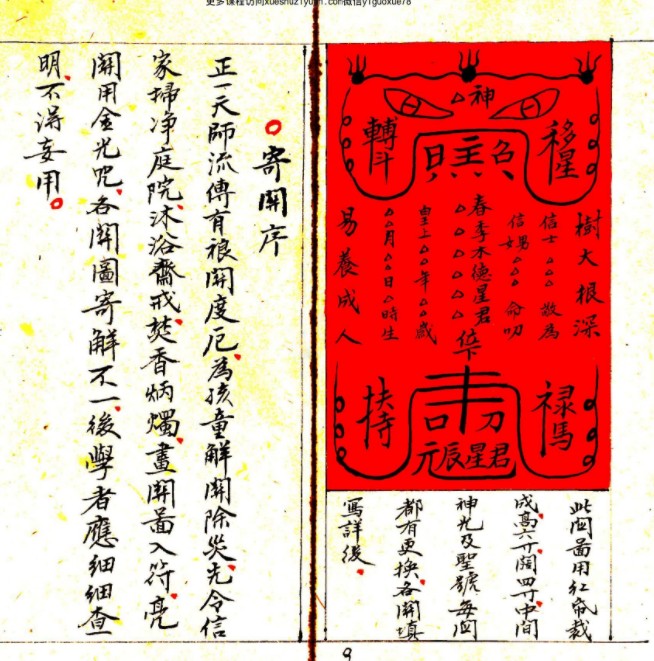 更多课程访问xueshuziyuan.com微信yiguoxue78
△神
移星
轉斗
樹大根深
信士△△△ 敬為
信男女△△△ 命叩
春季木德星君△△△△位下
皇上△△年△△歲
△△月△△日△時生
易養成人
禄馬
扶持
元辰星君
此関圖用红紙裁
成高六寸闊四寸中间
神光及聖號每関
都有更换各関填
寫詳後
寄関序
正一天師流傳有禳関度厄為孩童解関除災先令信
家掃净庭院沐浴齋戒焚香炳燭畫関圖入符亮
関用金光咒各関圖寄解不一後學者應細細查
明不得妄用
9